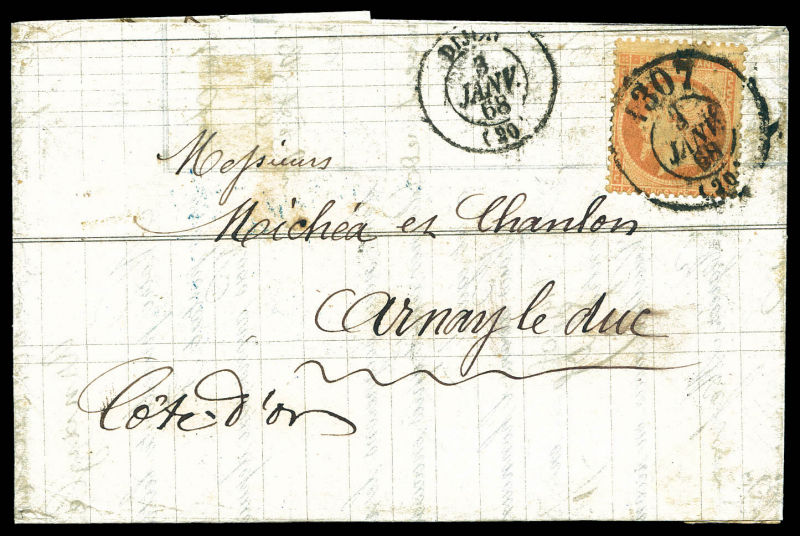 DIJON
3
JANV.
68
(20)
1307
3
JANV.
68
(20)
Messieurs
Michéa et Chanlon
Arnay le duc
Côte-d'or